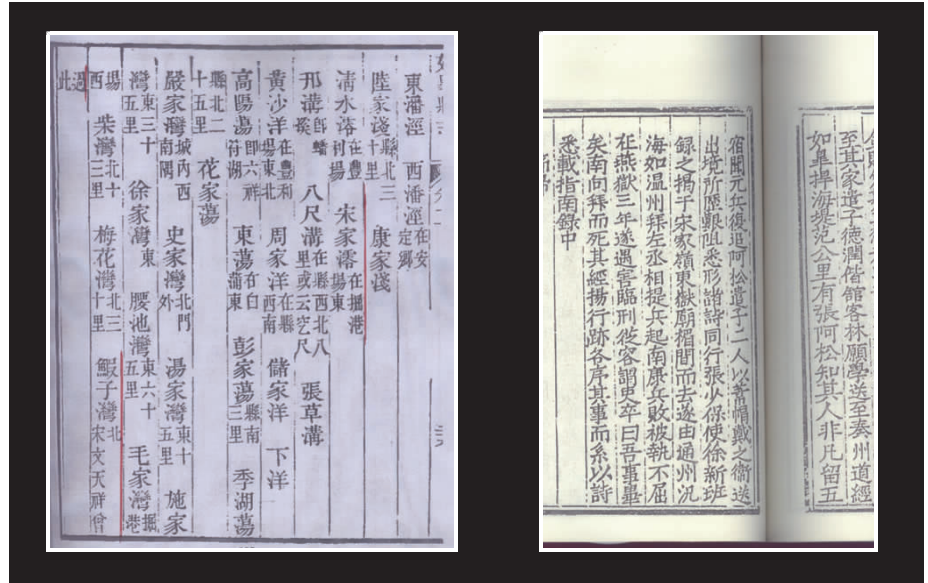 東潘涇　西潘涇在安定鄉
陸家淺縣北三十里　康家淺
淸水澪在豐利場　宋家澪在掘港場東
邗溝卽蟠溪　八尺溝在縣西北八里或云　尺　張草溝
黃沙洋在豐利場東北　周家洋在縣西南　儲家洋　下洋
高陽蕩卽六祥符湖　東蕩在白蒲東　彭家蕩縣南三里　季湖蕩
縣北二十五里　花家蕩
嚴家灣城內西南隅　史家灣北門外　湯家灣東十五里　施家
灣東三十五里　徐家灣東　腰池灣東六十五里　毛家灣掘港
場西　柴灣北十三里　梅花灣北三十里　鰕子灣北宋文天祥曾
過此
至其家遣子德潤偕館客林願學送至泰州道經
如皋捍海堤范公里有張阿松知其人非凡留五
宿聞元兵復追阿松遣子二人以箬帽戴之衞送
出境所歷艱阻悉形諸詩同行張少保使徐新班
錄之揭于宋家嶺東嶽廟楣間而去遂由通州汎
海如溫州拜左丞相提兵起南康兵敗被執不屈
在燕獄三年遂遇害臨刑從容謂吏卒曰吾事畢
矣南向拜而死其經揚行跡各序其事而系以詩
悉載指南錄中